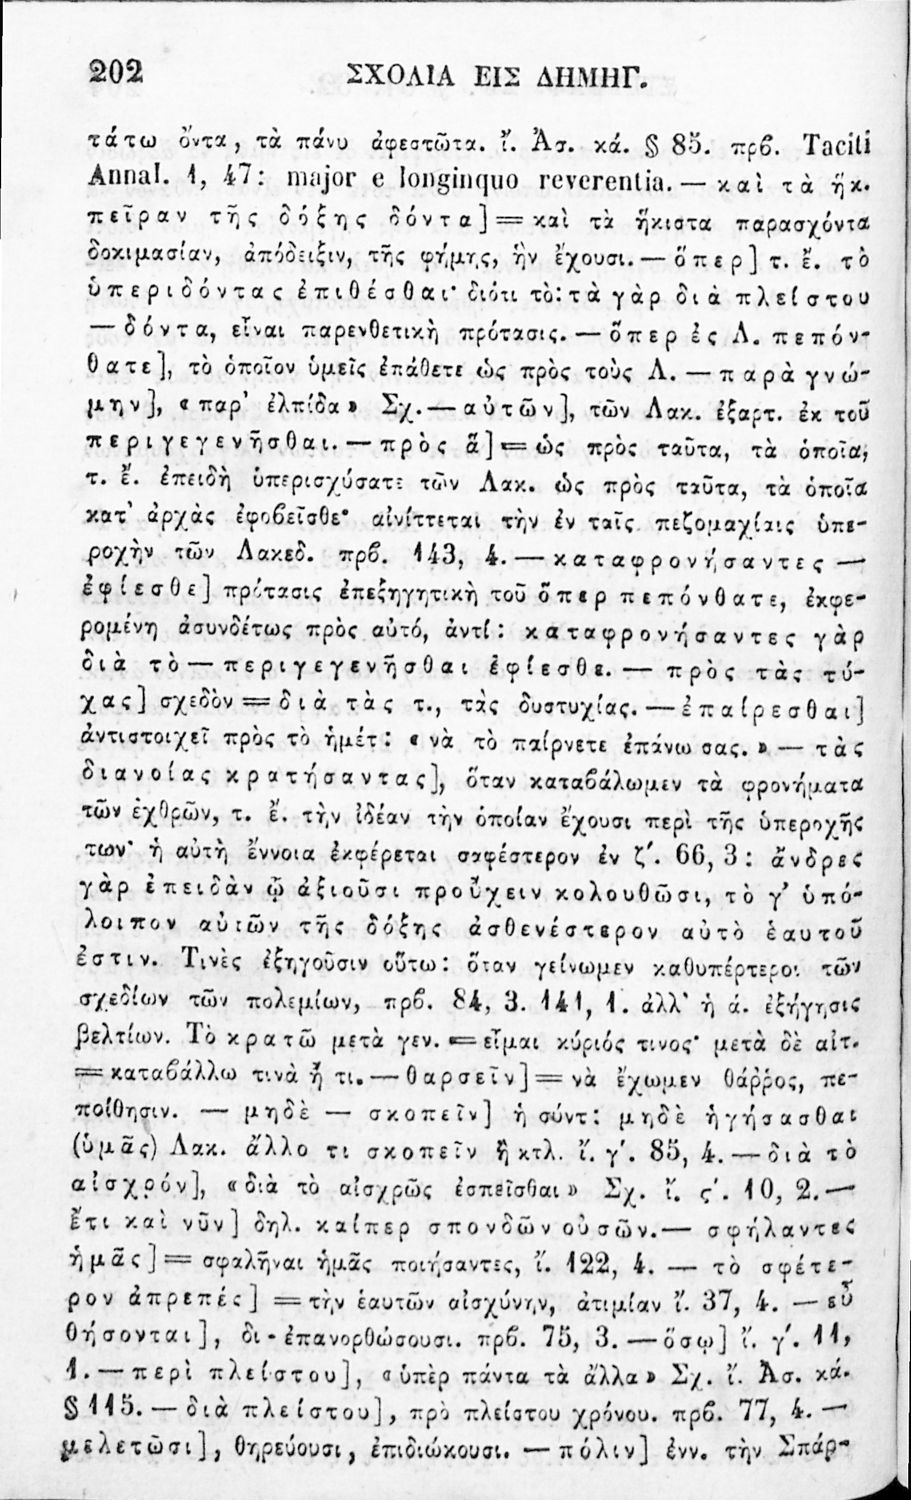 202 ΣΧΟΛΙΑ ΕΙΣ ΔΗΜΗΓ.
τάτω ὄντα, τὰ πάνυ ἀφεστῶτα. ἴ. Ἀσ. κά. § 85. πρβ. Taciti
Annal. 1, 47: major e longinquo reverentia. — καὶ τὰ ἥκ.
πεῖραν τῆς δόξης δόντα] = καὶ τὰ ἥκιστα παρασχόντα
δοκιμασίαν, ἀπόδειξιν, τῆς φήμης, ἣν ἔχουσι. — ὅπερ] τ. ἔ. τὸ
ὑπεριδόντας ἐπιθέσθαι· διότι τὸ: τὰ γὰρ διὰ πλείστου
— δόντα, εἶναι παρενθετικὴ πρότασις. — ὅπερ ἐς Λ. πεπόν-
θατε], τὸ ὁποῖον ὑμεῖς ἐπάθετε ὡς πρὸς τοὺς Λ. — παρὰ γνώ-
μην], «παρ' ἐλπίδα» Σχ. — αὐτῶν], τῶν Λακ. ἐξαρτ. ἐκ τοῦ
περιγεγενῆσθαι. — πρὸς ἃ] = ὡς πρὸς ταῦτα, τὰ ὁποῖα,
τ. ἔ. ἐπειδὴ ὑπερισχύσατε τῶν Λακ. ὡς πρὸς ταῦτα, τὰ ὁποῖα
κατ' ἀρχὰς ἐφοβεῖσθε· αἰνίττεται τὴν ἐν ταῖς πεζομαχίαις ὑπε-
ροχὴν τῶν Λακεδ. πρβ. 143, 4. — καταφρονήσαντες —
ἐφίεσθε] πρότασις ἐπεξηγητικὴ τοῦ ὅπερ πεπόνθατε, ἐκφε-
ρομένη ἀσυνδέτως πρὸς αὐτό, ἀντί: καταφρονήσαντες γὰρ
διὰ τὸ — περιγεγενῆσθαι ἐφίεσθε. — πρὸς τὰς τύ-
χας] σχεδὸν = διὰ τὰς τ., τὰς δυστυχίας. — ἐπαίρεσθαι]
ἀντιστοιχεῖ πρὸς τὸ ἡμέτ: «νὰ τὸ παίρνετε ἐπάνω σας.» — τὰς
διανοίας κρατήσαντας], ὅταν καταβάλωμεν τὰ φρονήματα
τῶν ἐχθρῶν, τ. ἔ. τὴν ἰδέαν τὴν ὁποίαν ἔχουσι περὶ τῆς ὑπεροχῆς
των· ἡ αὐτὴ ἔννοια ἐκφέρεται σαφέστερον ἐν ζ'. 66, 3: ἄνδρες
γὰρ ἐπειδὰν ᾧ ἀξιοῦσι προὔχειν κολουθῶσι, τὸ γ' ὑπό-
λοιπον αὐτῶν τῆς δόξης ἀσθενέστερον αὐτὸ ἑαυτοῦ
ἐστιν. Τινὲς ἐξηγοῦσιν οὕτω: ὅταν γείνωμεν καθυπέρτεροι τῶν
σχεδίων τῶν πολεμίων, πρβ. 84, 3. 141, 1. ἀλλ' ἡ ά. ἐξήγησις
βελτίων. Τὸ κρατῶ μετὰ γεν. = εἶμαι κύριός τινος· μετὰ δὲ αἰτ.
= καταβάλλω τινὰ ἤ τι. — θαρσεῖν] = νὰ ἔχωμεν θάῤῥος, πε-
ποίθησιν. — μηδὲ — σκοπεῖν] ἡ σύντ: μηδὲ ἡγήσασθαι
(ὑμᾶς) Λακ. ἄλλο τι σκοπεῖν ἢ κτλ. ἴ. γ'. 85, 4. — διὰ τὸ
αἰσχρόν], «διὰ τὸ αἰσχρῶς ἐσπεῖσθαι» Σχ. ἴ. ς'. 10, 2. —
ἔτι καὶ νῦν] δηλ. καίπερ σπονδῶν οὐσῶν. — σφήλαντες
ἡμᾶς] = σφαλῆναι ἡμᾶς ποιήσαντες, ἴ. 122, 4. — τὸ σφέτε-
ρον ἀπρεπές] = τὴν ἑαυτῶν αἰσχύνην, ἀτιμίαν ἴ. 37, 4. — εὖ
θήσονται], δι-επανορθώσουσι. πρβ. 75, 3. — ὅσῳ] ἴ. γ'. 11,
1. — περὶ πλείστου], «ὑπὲρ πάντα τὰ ἄλλα» Σχ. ἴ. Ἀσ. κά.
§ 115. — διὰ πλείστου], πρὸ πλείστου χρόνου. πρβ. 77, 4. —
μελετῶσι], θηρεύουσι, ἐπιδιώκουσι. — πόλιν] ἐνν. τὴν Σπάρ-